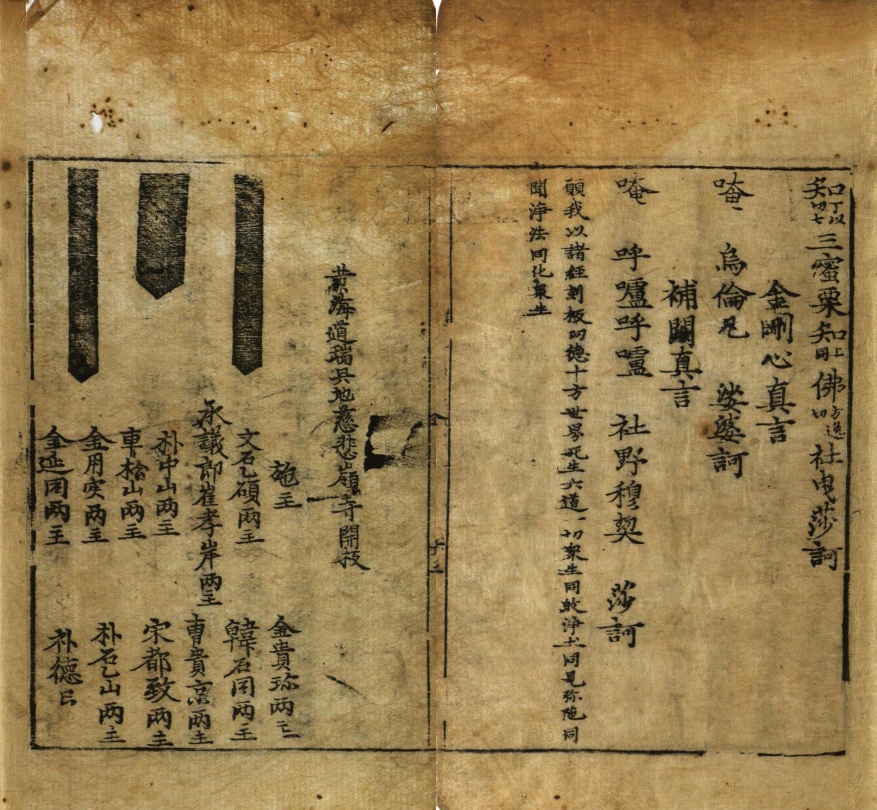 知丁以切七三蜜栗知上同佛方逸切社曳莎訶
金剛心真言
唵 烏倫尼 娑婆訶
補闕真言
唵 呼嚧呼嚧 社野穆契 莎訶
願我以諸経刻板功徳十方世界死生六道一切衆生同敀淨土同見弥陁同
聞淨法同化衆生
黄海道瑞兵地慈悲嶺寺開板
施主 金貴珎兩主
文石乙碩兩主 韓石同兩主
承議郎崔孝岸兩主 曹貴京兩主
朴中山兩主 宋都致兩主
車松山兩主 朴石乙山兩主
金用实兩主 朴德
金延同兩主